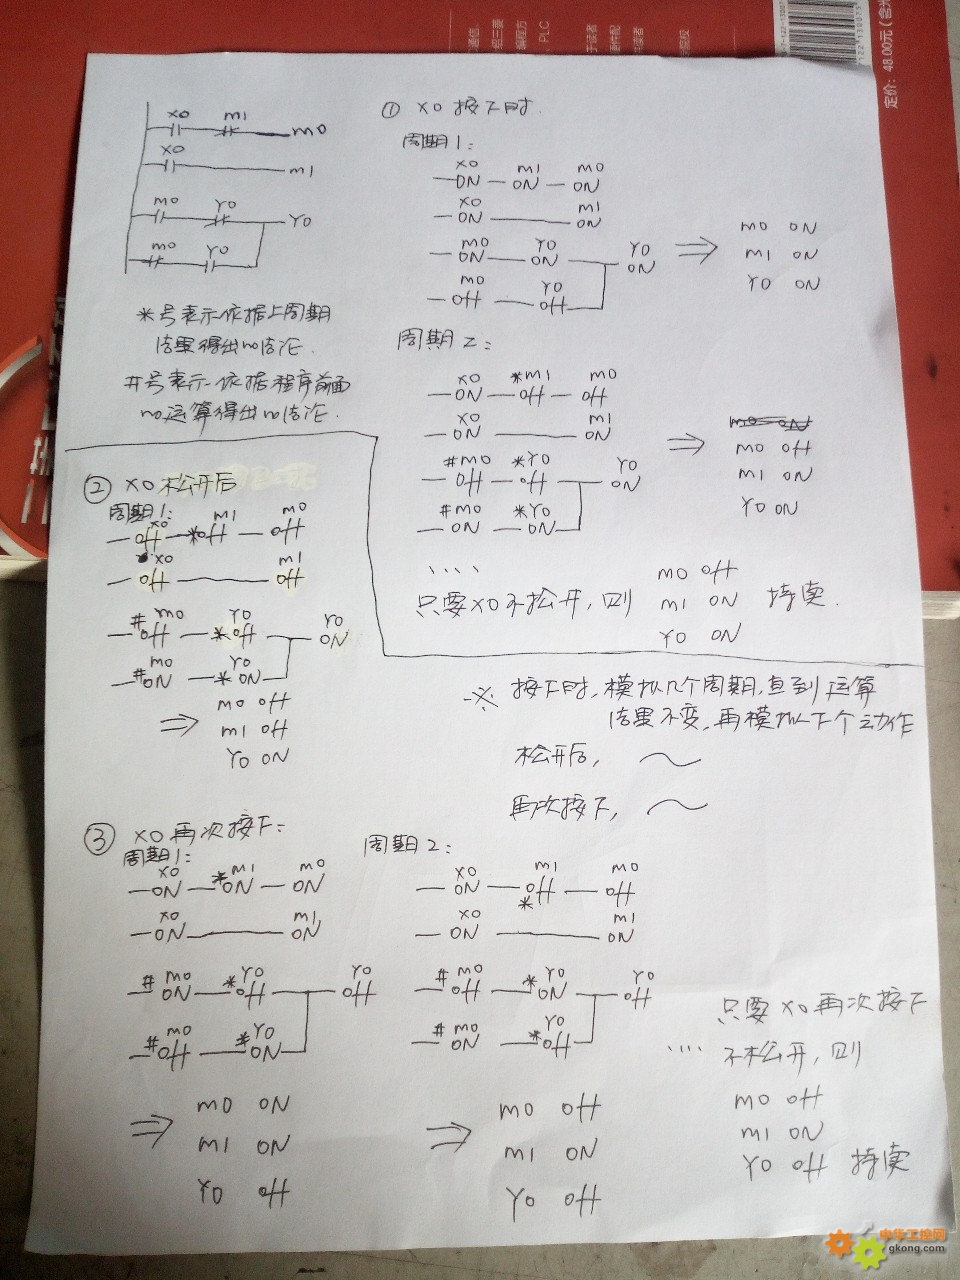 X0 m1 m0
X0 m1
m0 Y0 Y0
m0 Y0
*号表示依据上周期
结果得出no结论.
#号表示依据程序前面
no运算得出no结论.
① X0按下时.
周期1:
X0 m1 m0
ON ON ON
X0 m1
ON ON
m0 Y0 Y0
ON ON ON
m0 Y0
off off
⇒ m0 ON
m1 ON
Y0 ON
周期2:
X0 *m1 m0
ON off off
X0 m1
ON ON
#m0 *Y0 Y0
off off ON
#m0 *Y0
ON ON
⇒ m0 off
m1 ON
Y0 ON
....
只要X0不松开,则 m0 off
m1 ON 持续.
Y0 ON
② X0松开后
周期1:
X0 m1 m0
off *off off
X0 m1
off off
#m0 Y0 Y0
off *off ON
#m0 Y0
ON *ON
⇒ m0 off
m1 off
Y0 ON
※ 按下时,模拟几个周期,直到运算
结果不变,再模拟下个动作
松开后,
再次按下,
③ X0再次按下:
周期1:
X0 *m1 m0
ON ON ON
X0 m1
ON ON
#m0 *Y0 Y0
ON off off
#m0 *Y0
off ON
⇒ m0 ON
m1 ON
Y0 off
周期2:
X0 m1 m0
ON *off off
X0 m1
ON ON
#m0 *Y0 Y0
off ON off
#m0 *Y0
ON off
⇒ m0 off
m1 ON
Y0 off
只要X0再次按下
.... 不松开,则
m0 off
m1 ON
Y0 off 持续
定价:48.00元(含光
PLC
编程方
中华工控网
gkong.com